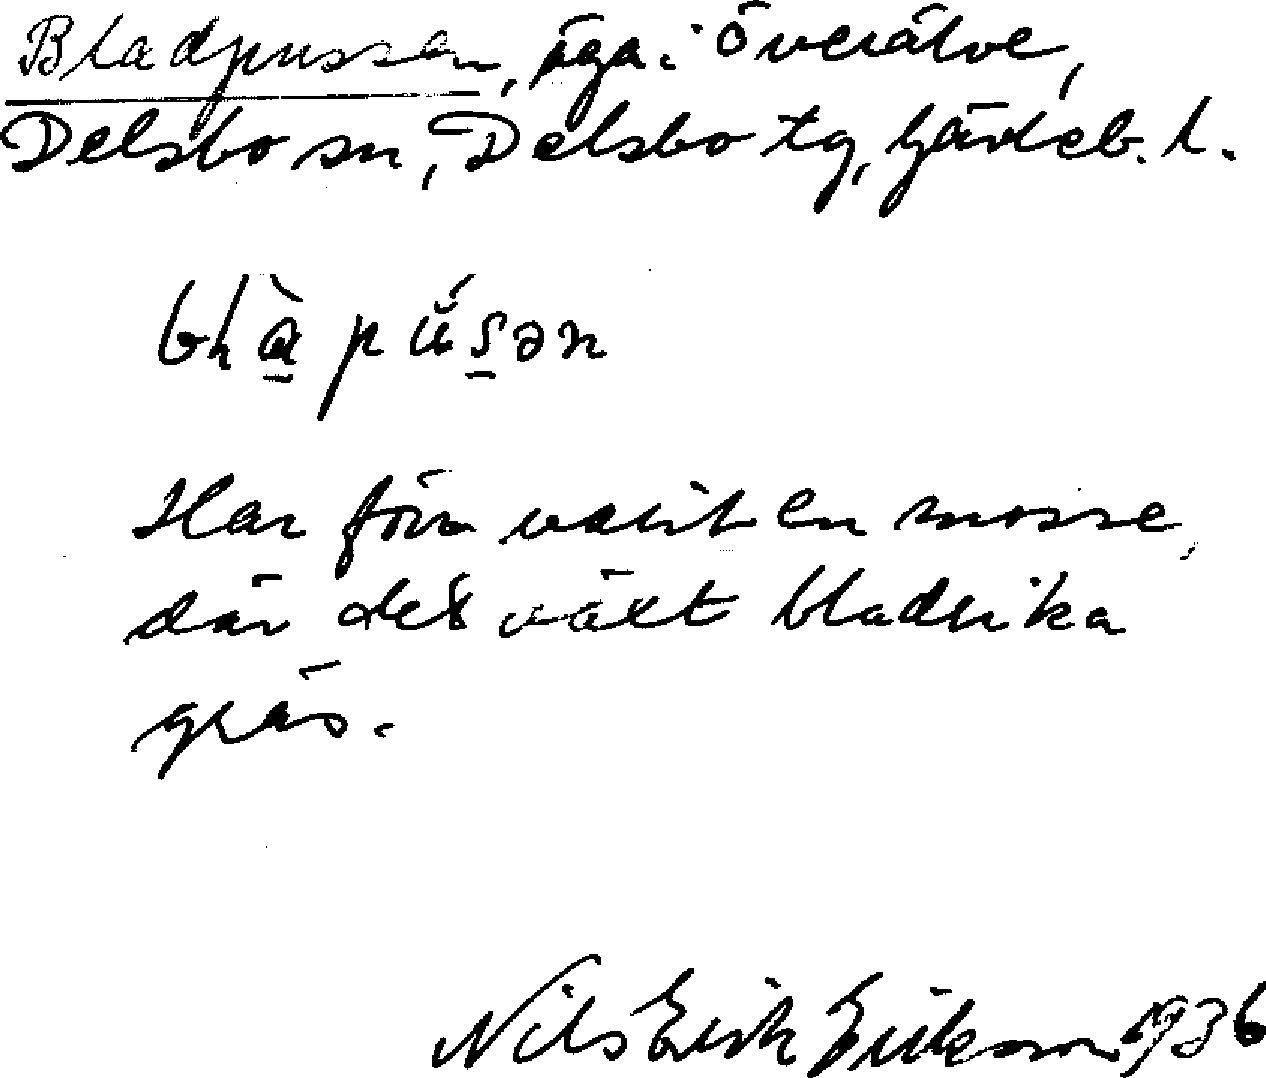 Bladpussen, äga i Överälve,
Delsbo sn, Delsbo tg, Gävleb. l.
blɑ̀ pŭ́sən
Har förr varit en mosse,
där det växt bladrika
gräs.
Nils Erik Erikson 1936